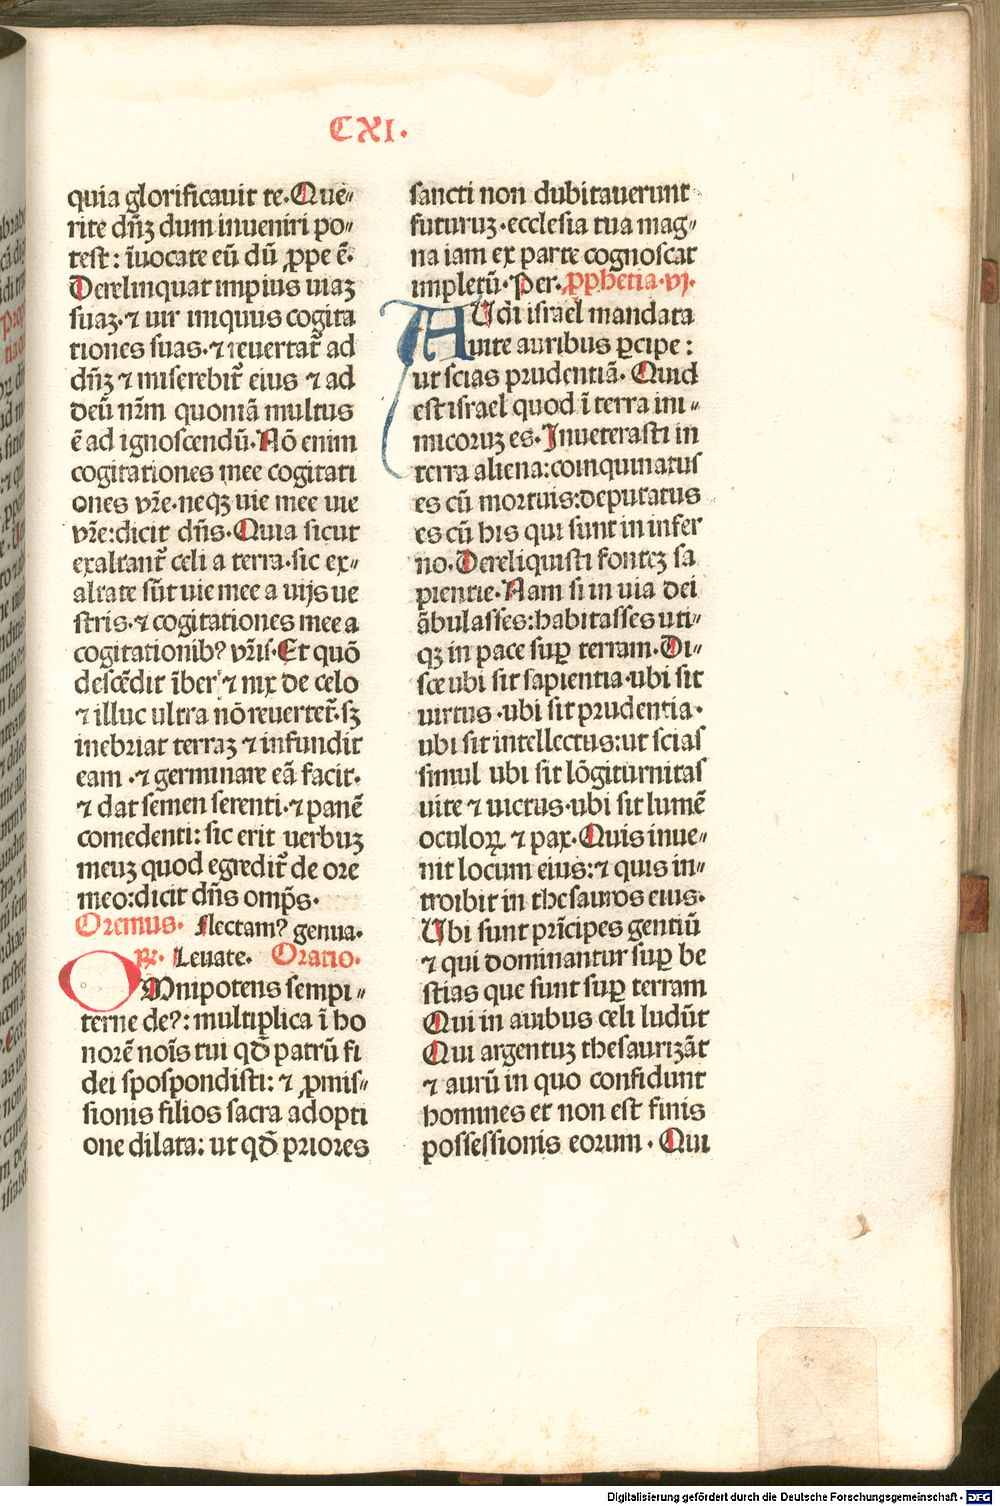 CXI.
quia glorificauit te. Que⸗
rite dn̄ꝫ dum inueniri po⸗
test: īuocate eū dū ꝓpe ē.
Derelinquat impius uiaꝫ
suaꝫ. ⁊ uir iniquus cogita
tiones suas. ⁊ reuertat᷑ ad
dn̄ꝫ ⁊ miserebit᷑ eius ⁊ ad
deū nr̄m quoniā multus
ē ad ignoscendū. Nō enim
cogitationes mee cogitati
ones vr̄e. neqꝫ uie mee uie
vr̄e: dicit dn̄s. Quia sicut
exaltant᷑ celi a terra. sic ex⸗
altate sūt uie mee a uijs ue
stris. ⁊ cogitationes mee a
cogitationibꝰ vr̄is. Et quō
descēdit īber ⁊ nix de celo
⁊ illuc ultra nō reuertet᷑. sꝫ
inebriat terraꝫ ⁊ infundit
eam. ⁊ germinare eā facit.
⁊ dat semen serenti. ⁊ panē
comedenti: sic erit uerbuꝫ
meuꝫ quod egredit᷑ de ore
meo: dicit dn̄s omp̄s.
Oremus. Flectamꝰ genua.
℞. Leuate. Oratio.
OMnipotens sempi⸗
terne deꝰ: multiplica ī ho
norē noīs tui qd̄ patrū fi
dei spospondisti: ⁊ ꝓmis⸗
sionis filios sacra adopti
one dilata: ut qd̄ priores
sancti non dubitauerunt
futuruꝫ. ecclesia tua mag⸗
na iam ex parte cognoscat
impletū. Per. ꝓphetia. vj.
AUdi israel mandata
uite auribus ꝑcipe:
ut scias prudentiā. Quid
est israel quod ī terra ini⸗
micoruꝫ es. Inueterasti in
terra aliena: coinquinatus
es cū mortuis: deputatus
es cū his qui sunt in infer
no. Dereliquisti fonteꝫ sa
pientie. Nam si in uia dei
ābulasses: habitasses uti⸗
qꝫ in pace suꝑ terram. Di⸗
sce ubi sit sapientia. ubi sit
uirtus. ubi sit prudentia.
ubi sit intellectus: ut scias
simul ubi sit lōgiturnitas
uite ⁊ uictus. ubi sit lumē
oculoꝝ ⁊ pax. Quis inue⸗
nit locum eius: ⁊ quis in⸗
troibit in thesauros eius.
Ubi sunt prīcipes gentiū
⁊ qui dominantur suꝑ be
stias que sunt suꝑ terram
Qui in auibus celi ludūt
Qui argentuꝫ thesaurizāt
⁊ aurū in quo confidunt
homines et non est finis
possessionis eorum. Qui
Digitalisierung gefördert durch die Deutsche Forschungsgemeinschaft - DFG